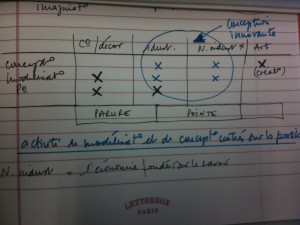 Imaginat°
conception
innovante
C°/décor | Indust. | N. indust. | Art
concept° X X X
modélisat° X X X (création)
P° X X
PARURE | POINTE
activité de modélisat° et de concept° centrés sur le
N. indust = l'économie fondée sur le savoir
LETTERBOX
PARIS